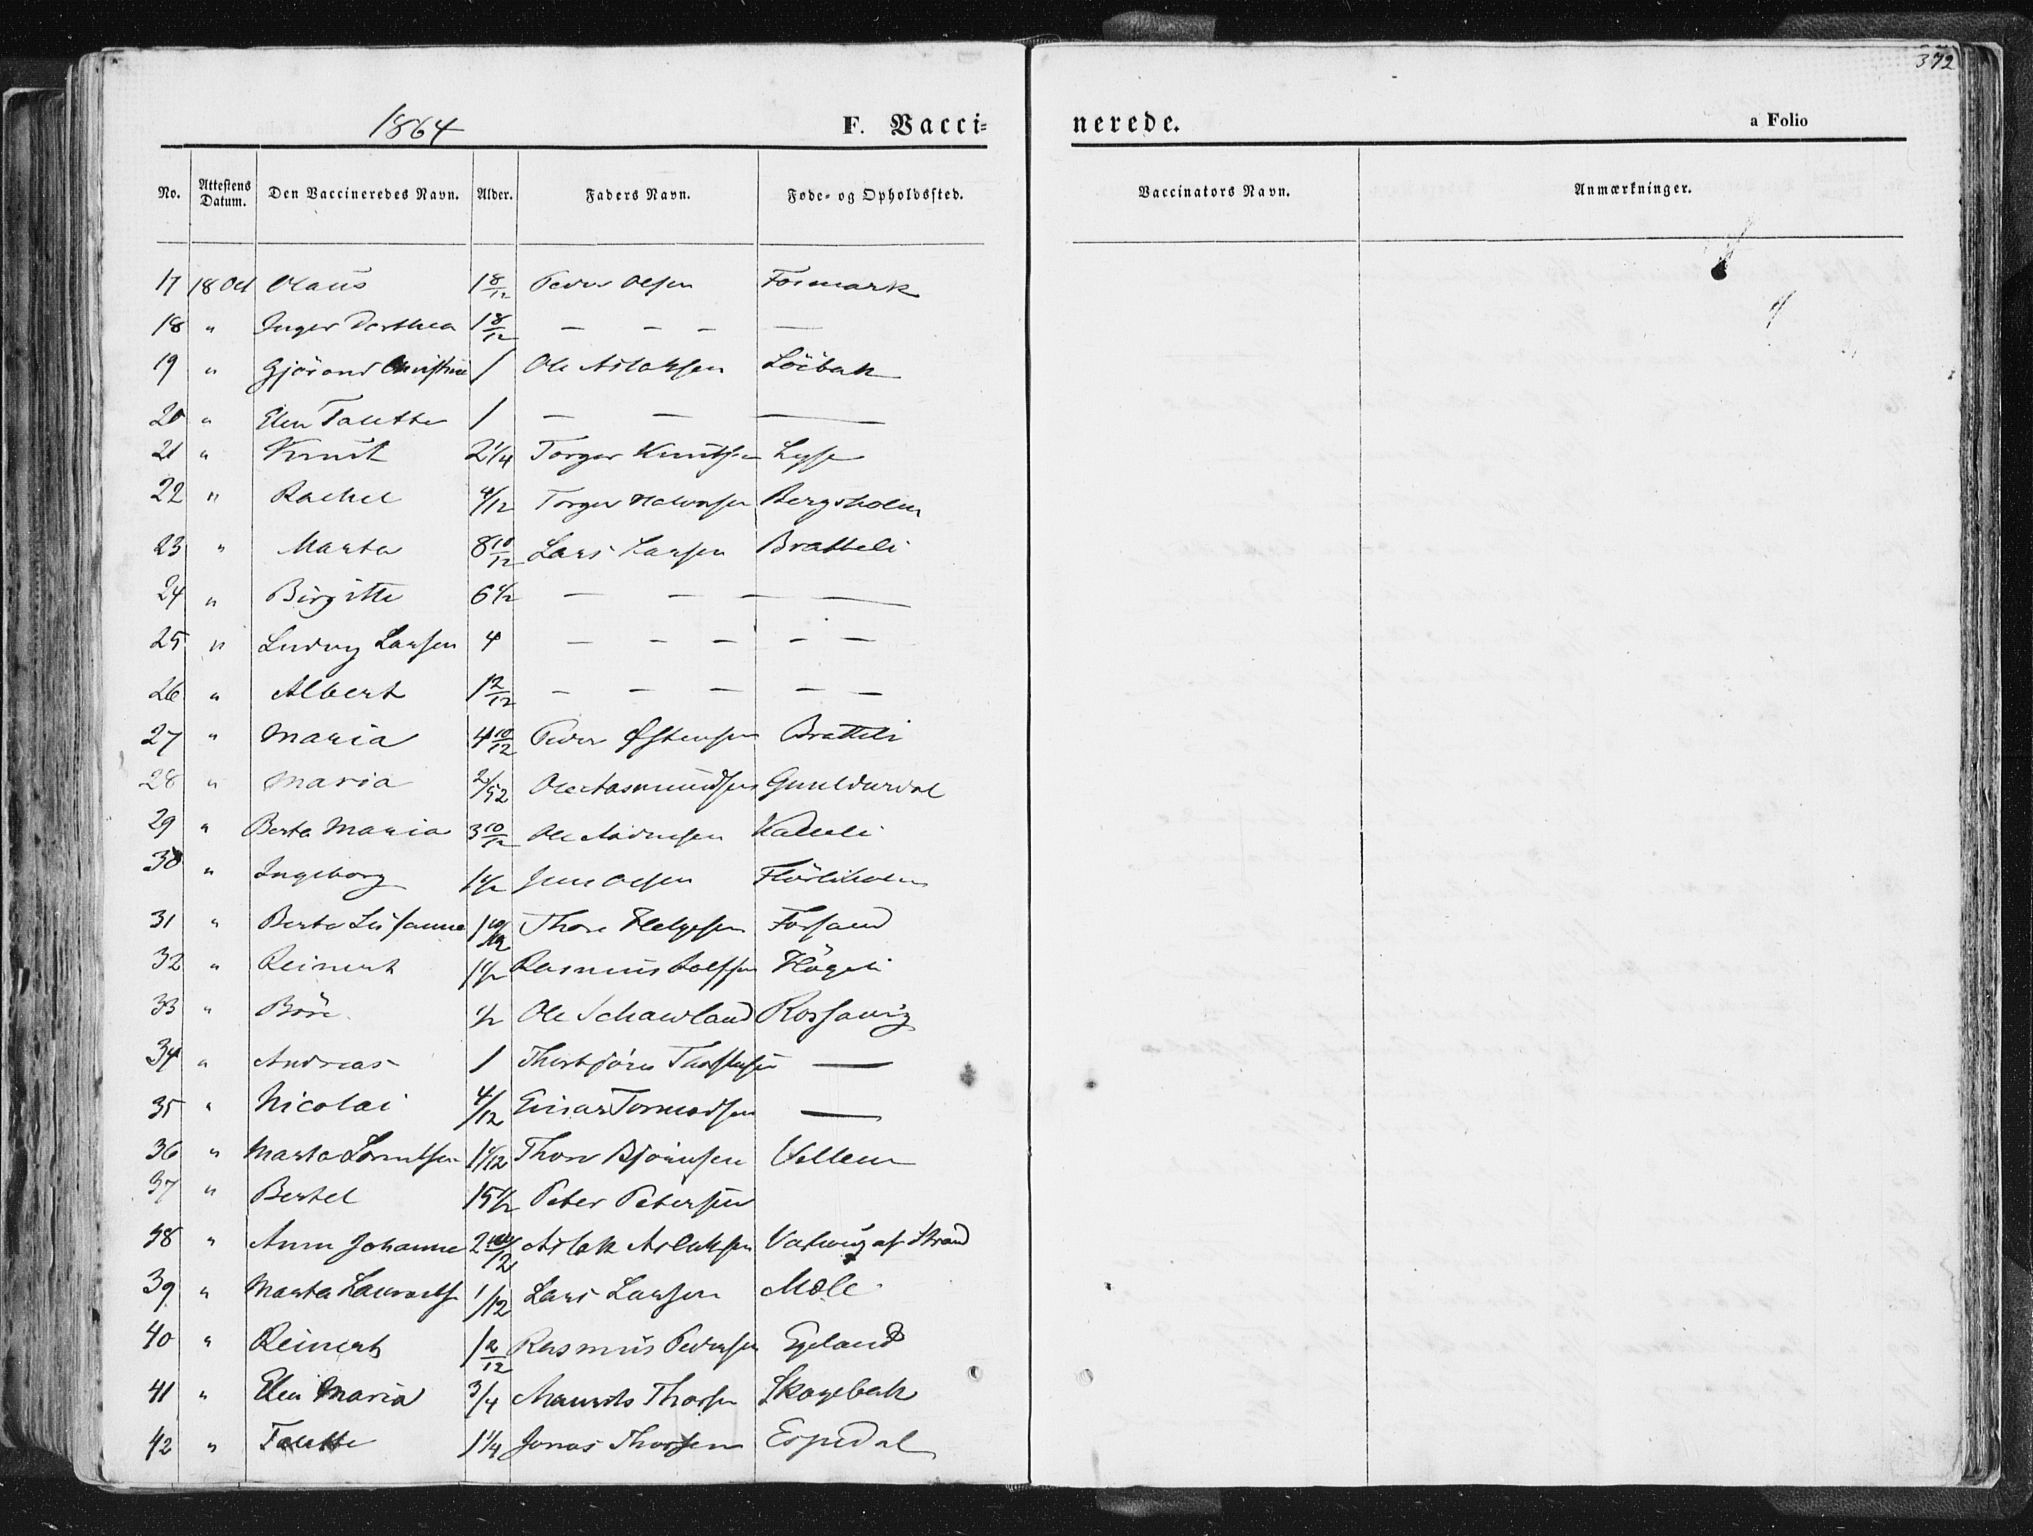 372
1864 F. Vacci= nerede. a Folio
No. Attestens Datum. Den Vaccineredes Navn. Alder. Faders Navn. Føde= og Opholdssted. Vaccinators Navn. Anmærkninger.
17 18 Oct Olaus 1 8/12 Peder Olsen Fosmark
18 " Inger Dorthea 1 8/12 — — — —
19 " Gjörond Christine 1 Ole Aslaksen Löibak
20 " Elen Talette 1 — — —
21 " Knut 2 1/4 Torger Knutsen Lyse
22 " Rachel 4/12 Torger Halvorsen Bergsholm
23 " Marta 8 10/12 Lars Larsen Bratteli
24 " Birgitte 6 1/2 — — — —
25 " Ludvig Larsen 4 — — — — —
26 " Albert 1 2/12 — — — — —
27 " Maria 4 10/12 Peder Østensen Bratteli
28 " Maria 2/52 Ole Aasmundsen
29 " Berta Maria 3 10/12 Ole
30 " Ingeborg 1 1/2 Jens Olsen
31 " Berta Susanne 1 10/12 Thore Helgesen Forsand
32 " Reinert 1 1/2 Rasmus Högeli
33 " Böre 1/2 Ole Schawland Rossavig
34 " Andreas 1 Thorbjörn Thorstensen —
35 " Nicolai 4/12 Einar Tormodsen —
36 " Marta 1 1/12 Thore Bjørnsen
37 " Bertel 15 1/2 Peter Petersen
38 " Ann Johanne 2 /12 Aslak Aslaksen af Strand
39 " Marta 1/12 Lars Larsen Mæle
40 " Reinert 1 2/12 Rasmus Pedersen Egeland
41 " Elen Maria 3/4 Maurits Thorsen Skogebak
42 " Talette 1 1/4 Jonas Thorsen Espedal